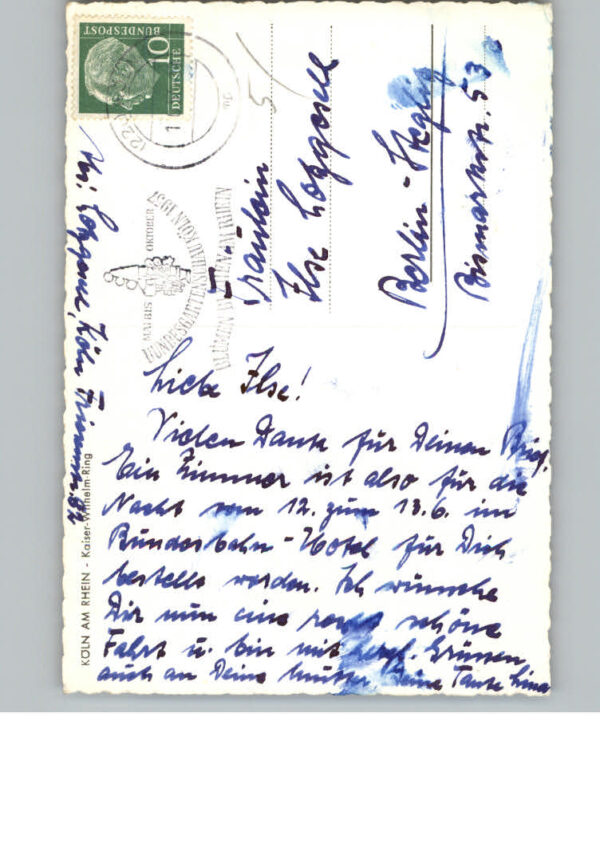 Liebe Ilse!
Vielen Dank für Deinen Brief.
Ein Zimmer ist also für die
Nacht vom 12. zum 13.6. im
Bundesbahn-Hotel für Dich
bestellt worden. Ich wünsche
Dir nun eine schöne
Fahrt u. bin mit herzl. Grüssen,
auch an Deine Mutter, Deine Tante
Fräulein
Ilse
Berlin-Steglitz
Bismarckstr. 53
5
Köln
KÖLN AM RHEIN - Kaiser-Wilhelm-Ring
DEUTSCHE
BUNDESPOST
10
MAI BIS OKTOBER
BUNDESGARTENSCHAU KÖLN 1957
BLUMEN BLÜHEN AM RHEIN